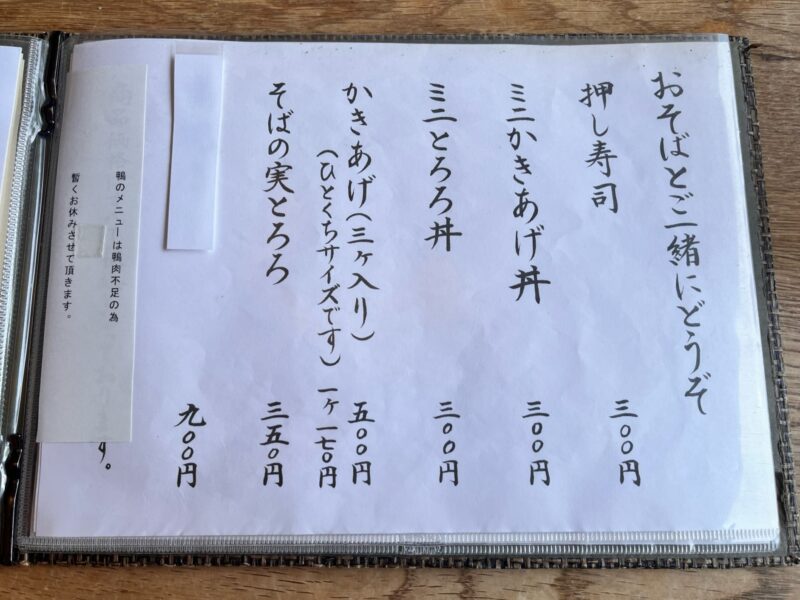 おそばとご一緒にどうぞ
押し寿司 三〇〇円
ミニかきあげ丼 三〇〇円
ミニとろろ丼 三〇〇円
かきあげ(三ヶ入り) 五〇〇円
(ひとくちサイズです) 一ヶ 一七〇円
そばの実とろろ 三五〇円
九〇〇円
す。
鴨のメニューは鴨肉不足の為
暫くお休みさせて頂きます。